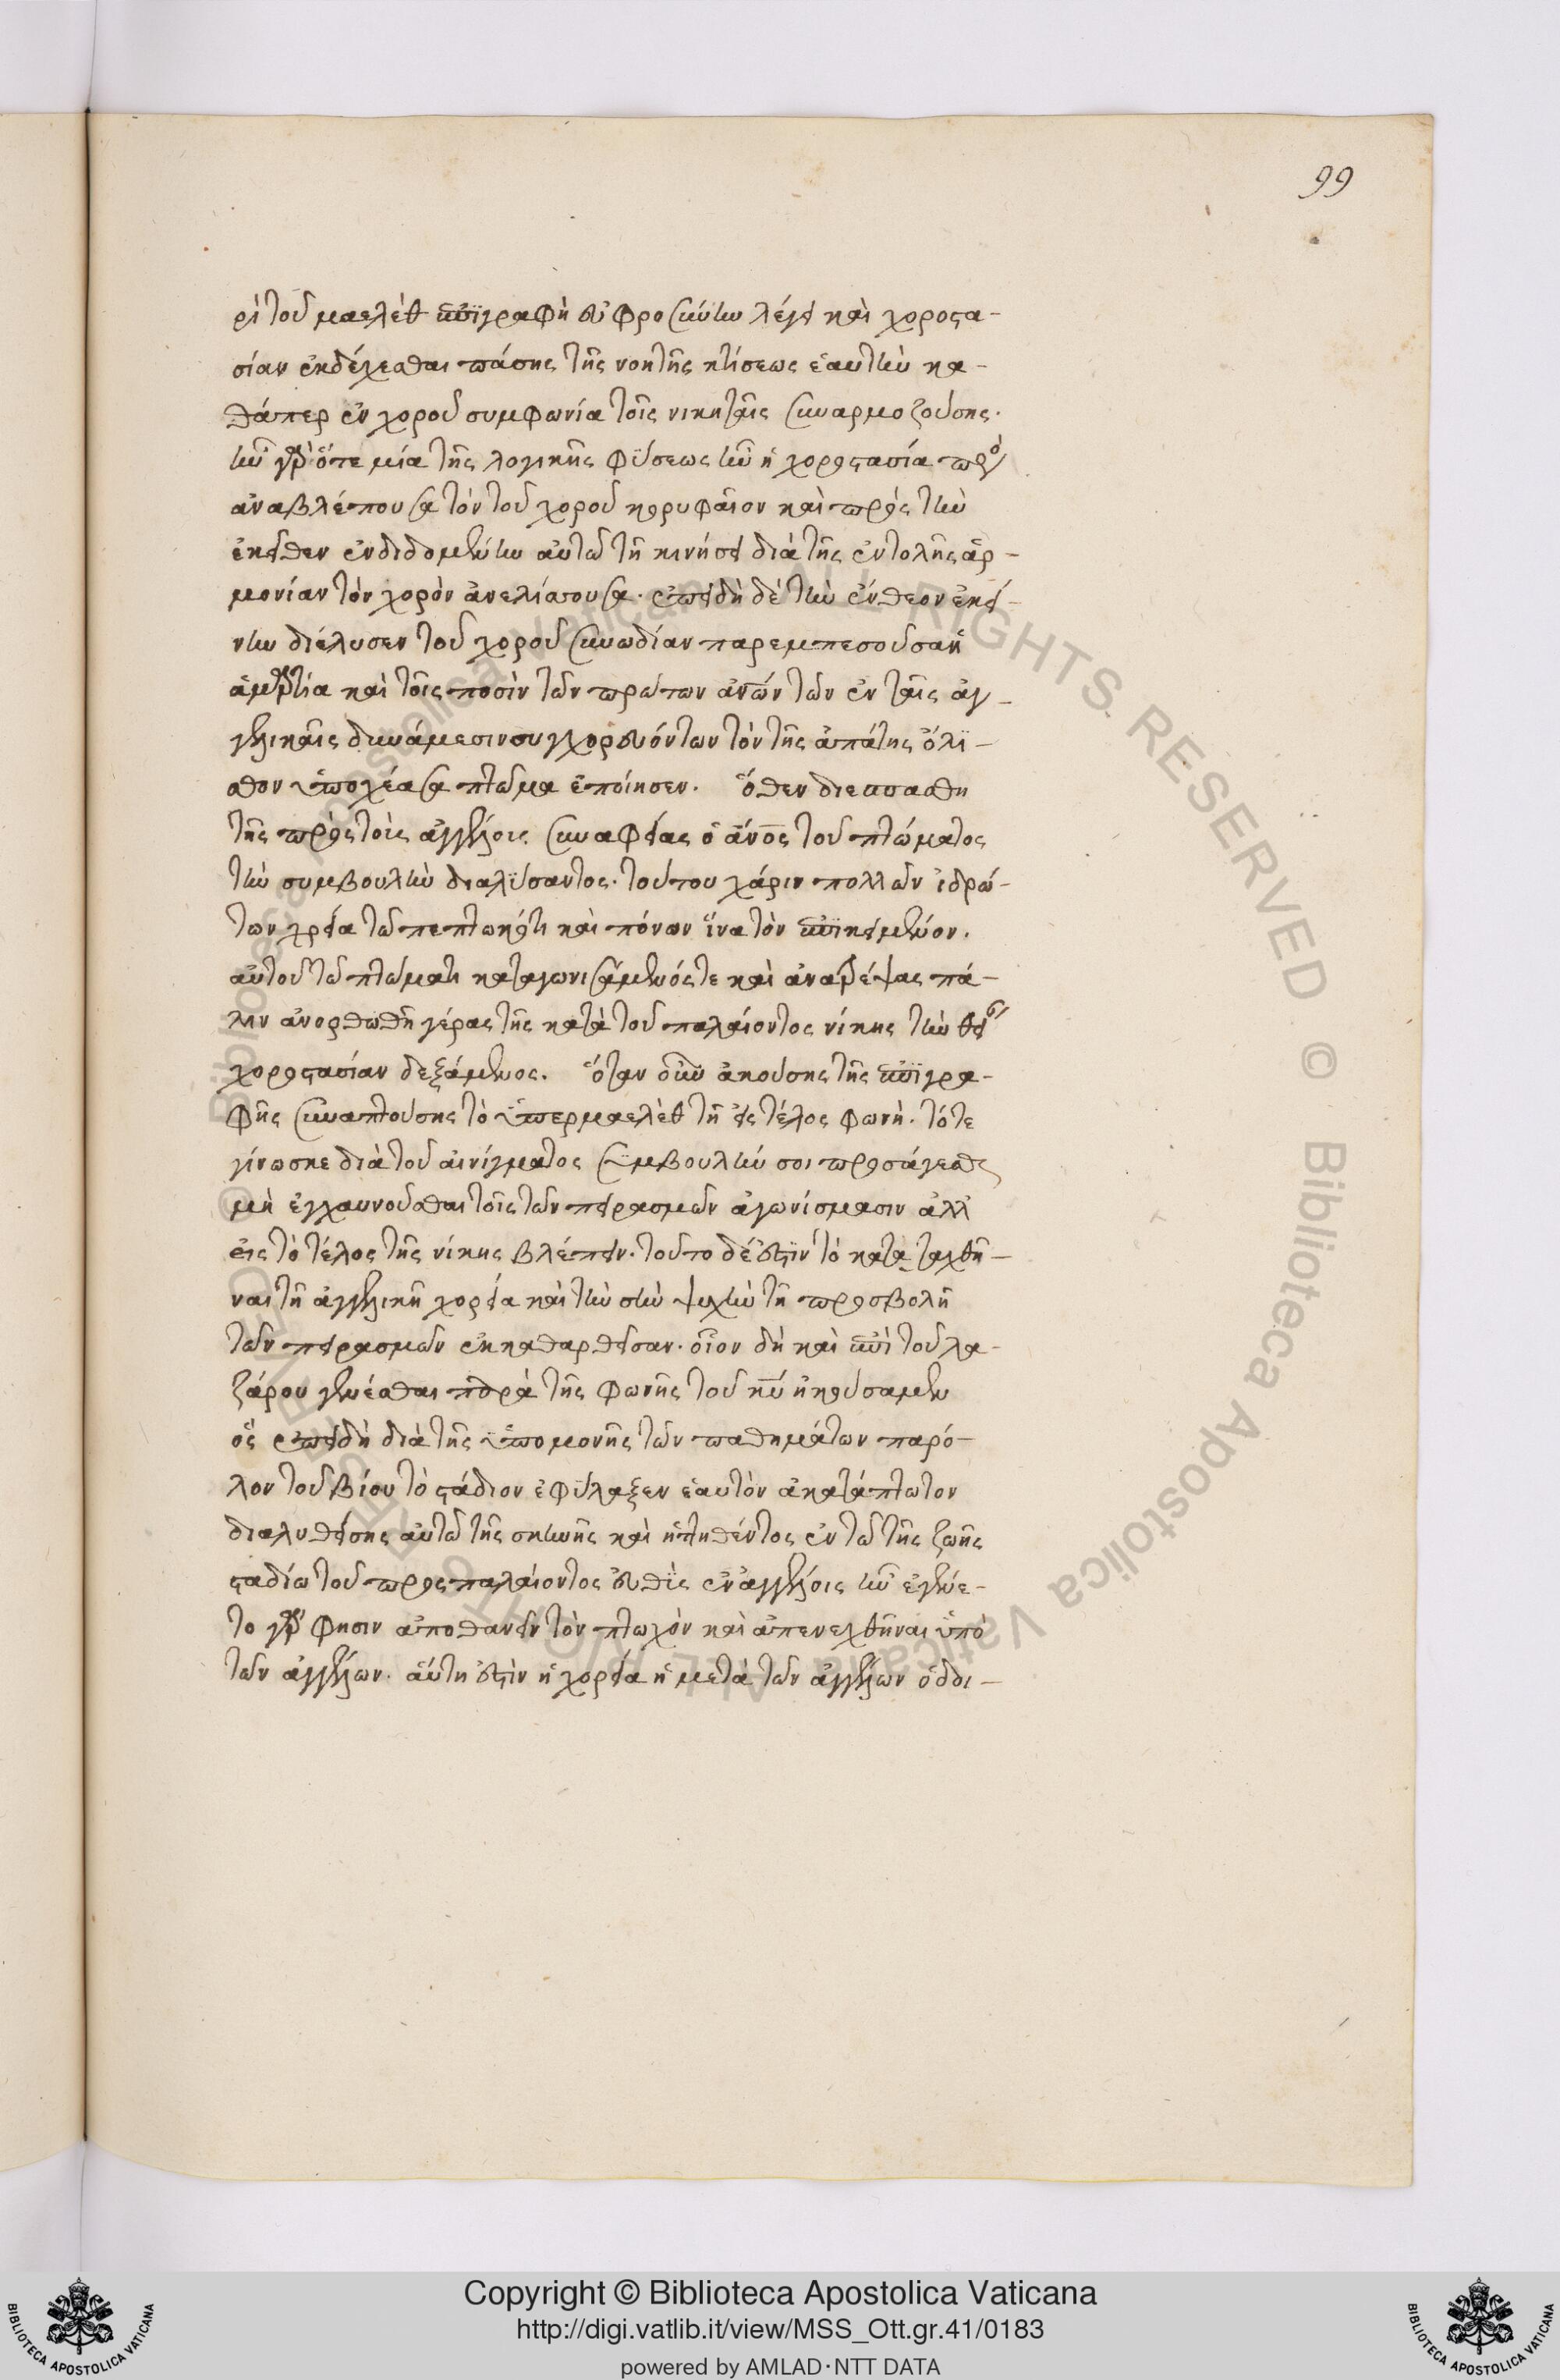 99
ρὶ τοῦ μαελὲθ ἐπϊγραφὴ εὐφροσύνην λέγει καὶ χοροστα-
σίαν ἐκδέχεσθαι πάσης τῆς νοητῆς κτίσεως ἑαυτὴν κα-
θάπερ ἐν χοροῦ συμφωνία τοῖς νικηταῖς συναρμοζούσης.
ἦν γὰρ ὅτε μία τῆς λογικῆς φϋσεως ἦν ἡ χοροστασία πρὸ
ἀναβλέπουσα τὸν τοῦ χοροῦ κορυφαῖον καὶ πρὸς τὴν
ἐκεῖθεν ἐνδιδομένην αὐτῶ τῆ κινήσει διὰ τῆς ἐντολῆς ἁρ-
μονίαν τὸν χορὸν ἀνελίσσουσα. ἐπειδὴ δὲ τὴν ἔνθεον ἐκεί-
νην διέλυσεν τοῦ χοροῦ συνωδίαν παρεμπεσοῦσα ἡ
ἁμαρτία καὶ τοῖς ποσὶν τῶν πρώτων ἀνῶν τῶν ἐν ταῖς ἀγ-
γελικαῖς δυνάμεσιν συγχορευόντων τὸν τῆς ἀπάτης ὄλϊ-
σθον ὑποχέασα πτῶμα ἐποίησεν. ὅθεν διεσπασθη
τῆς πρὸς τοὶς ἀγγέλοις συναφείας ὁ ἄνος τοῦ πτώματος
τὴν συμβουλὴν διαλϋσαντος. τούτου χάριν πολλῶν ἱδρώ-
των χρεία τῶ πεπτωκότι καὶ πόνων ἵνα τὸν ἐπϊκείμενον.
αὐτοῦ τῶ πτώματι καταγωνισάμενός τε καὶ ἀναστρέψας πά-
λιν ἀνορθωθῆ γέρας τῆς κατὰ τοῦ παλαίοντος νίκης τὴν θεί
χοροστασίαν δεξάμενος. ὅταν οὖν ἀκούσης τῆς ἐπϊγρα-
φῆς συναπτούσης τὸ ὑπερμαελὲθ τῆ εἰς τέλος φωνὴ. τότε
γίνωσκε διὰ τοῦ αἰνίγματος συμβουλήν σοι προσάγεσθαι
μὴ ἐγχαυνοῦσθαι τοῖς τῶν πειρασμῶν ἀγωνίσμασιν ἀλλ
εἰς τὸ τέλος τῆς νίκης βλέπειν. τοῦτο δέ ἐστϊν τὸ καταταχθῆ-
ναι τῆ ἀγγελικῆ χορεία καὶ τὴν σὴν ψυχὴν τῆ προσβολῆ
τῶν πειρασμῶν ἐκκαθαρθεῖσαν. οἷον δὴ καὶ ἐπὶ τοῦ λα-
ζάρου γενέσθαι παρὰ τῆς φωνῆς τοῦ κυ ἠκούσαμεν
ὃς ἐπειδὴ διὰ τῆς ὑπομονῆς τῶν παθημάτων παρό-
λον τοῦ βίου τὸ στάδιον ἐφϋλαξεν ἑαυτὸν ἀκατάπτωτον
διαλυθείσης αὐτῶ τῆς σκηνῆς καὶ ἡττηθέντος ἐν τῶ τῆς ζωῆς
σταδίω τοῦ προσπαλαίοντος εὐθὶς ἐν ἀγγέλοις ἦν ἐγένε-
το γὰρ φησιν ἀποθανεῖν τὸν πτωχὸν καὶ ἀπενεχθῆναι ὑπὸ
τῶν ἀγγέλων. αὕτη ἐστὶν ἡ χορεία ἡ μετὰ τῶν ἀγγέλων ὁδοι-
Copyright © Biblioteca Apostolica Vaticana
http://digi.vatlib.it/view/MSS_Ott.gr.41/0183
powered by AMLAD·NTT DATA